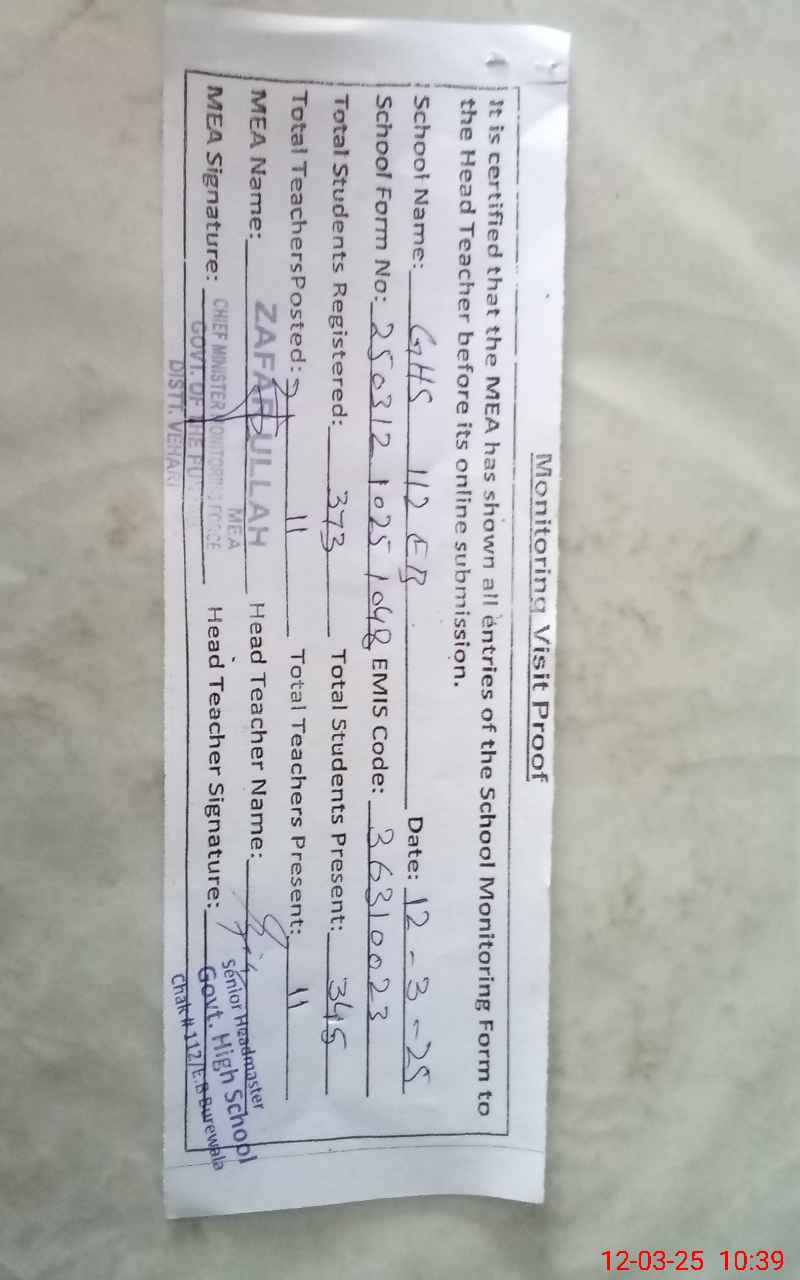 Monitoring Visit Proof
It is certified that the MEA has shown all entries of the School Monitoring Form to
the Head Teacher before its online submission.
School Name: GHS 112 EB Date: 12-3-25
School Form No: 250312 1025 1048 EMIS Code: 36310023
Total Students Registered: 373 Total Students Present: 345
Total TeachersPosted: 11 Total Teachers Present: 11
MEA Name: ZAFARULLAH Head Teacher Name:
MEA
MEA Signature: CHIEF MINISTER MONITORING FORCE Head Teacher Signature:
GOVT. OF THE
DISTT. VEHARI
Senior Headmaster
Govt. High School
Chak # 112/E.B Burewala
12-03-25 10:39